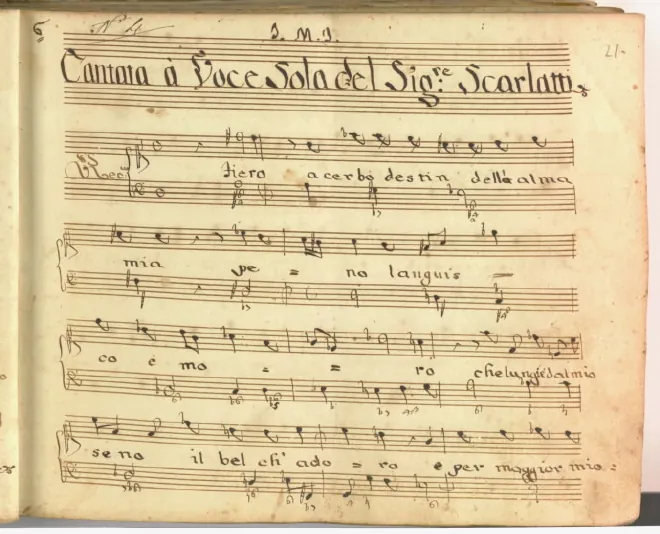 J. M. J.
21
Cantata à Voce Sola del Sig.re Scarlatti
Fiero acerbo destin dell'alma
mia pe = no languis =
co e mo = = ro che lungi dal mio
seno il bel ch' ado = ro e per maggior mio =